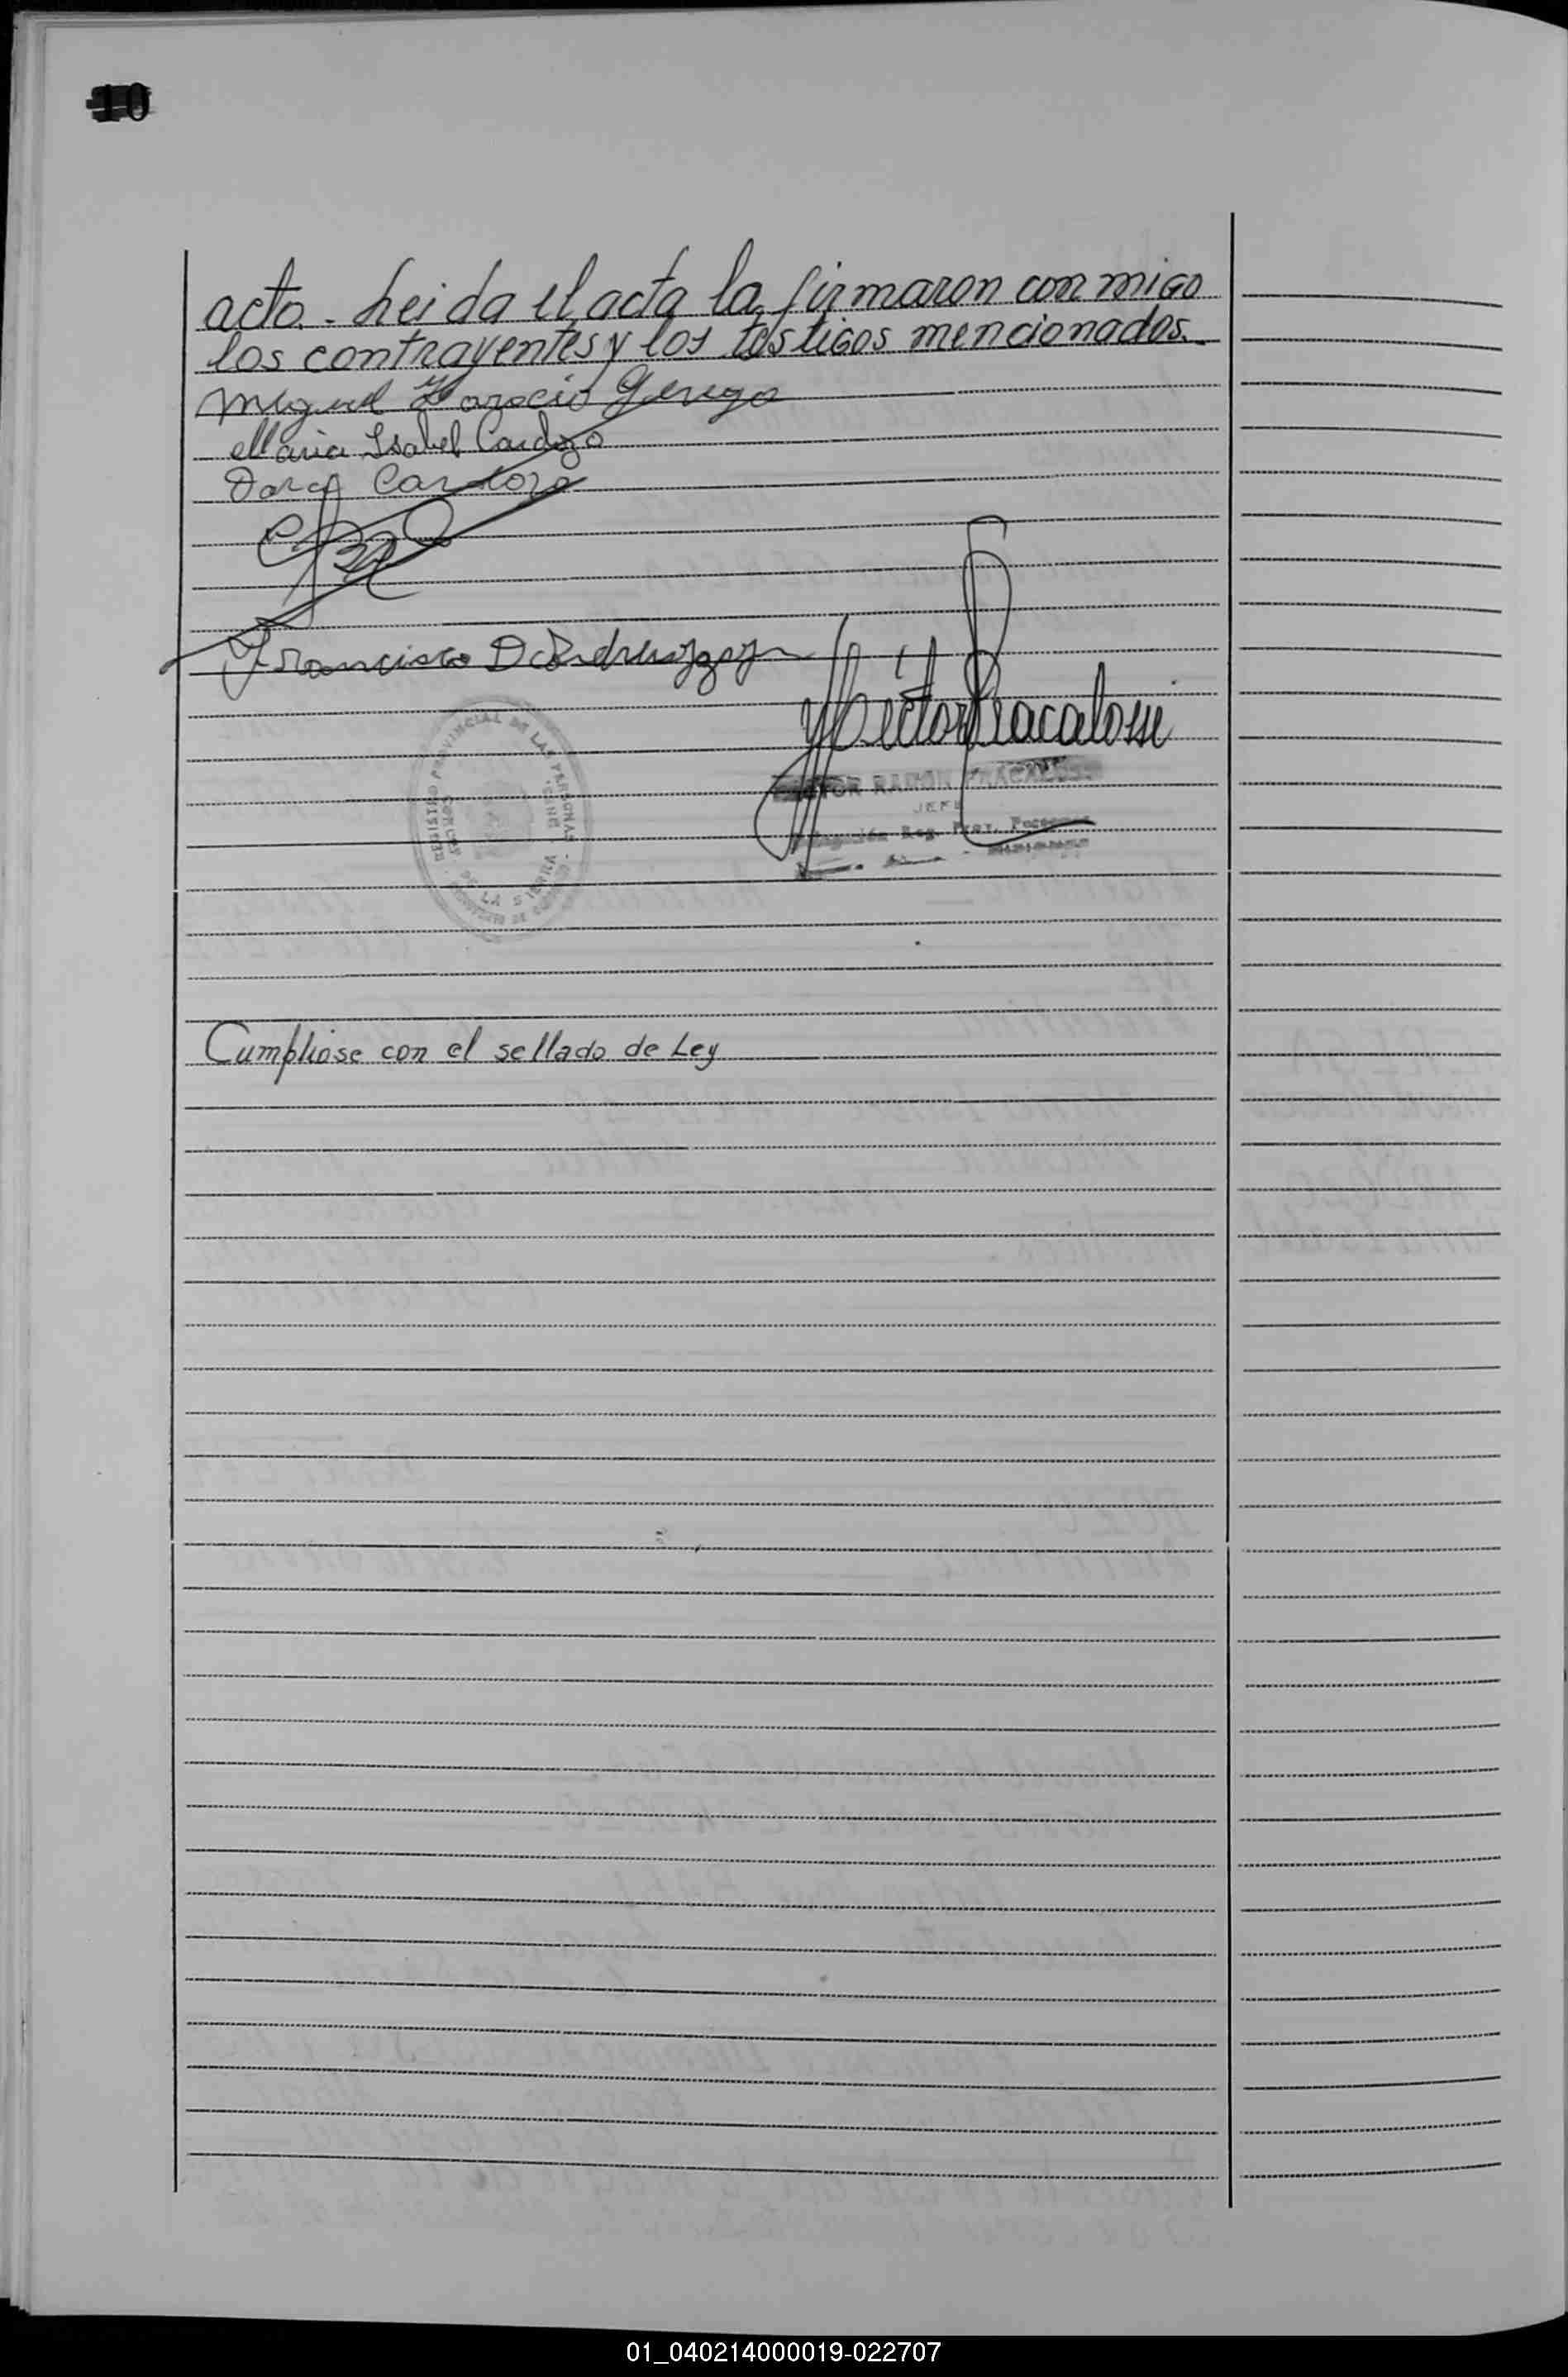 10
acto. Leida el acta la firmaron con migo
los contrayentes y los testigos mencionados.
Miguel Horacio Gerega
Maria Isabel Cardozo
Cardozo
Francisco D
Hector Fracalossi
HECTOR RAMON FRACALOSSI
JEFE
Delegación Reg. Prov. Personas
REGISTRO PROVINCIAL DE LAS PERSONAS
DE LA SIERRA
Cumpliose con el sellado de Ley
01_040214000019-022707